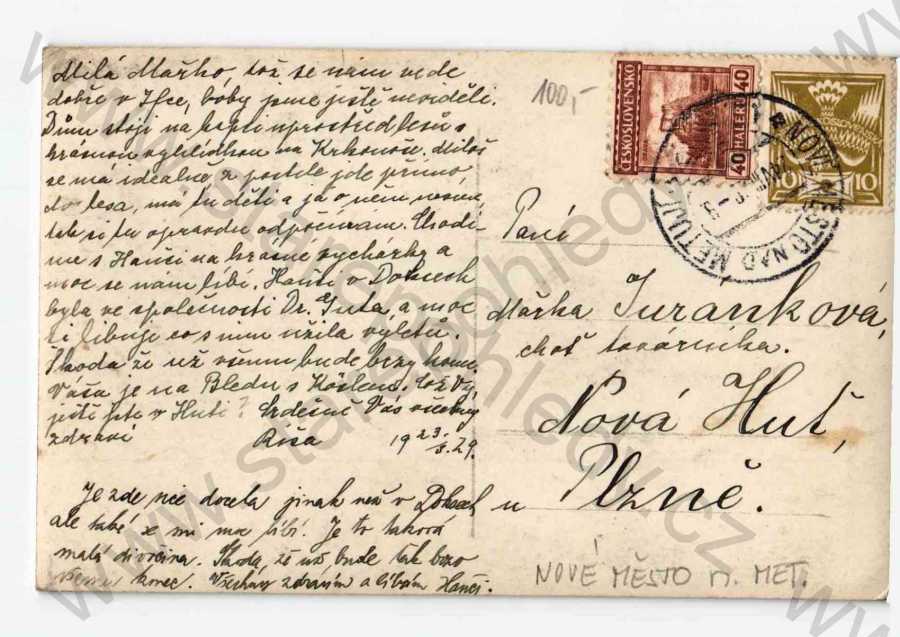 Milá Mařko, tož se nám vede
dobře v , boby jsme ještě neviděli.
Dům stojí na kopci uprostřed lesů s
krásnou vyhlídkou na Krkonoše. Miloš
se má ideálně, z postele jde přímo
do lesa, má tu děti a já o něm nevím,
tak si tu opravdu odpočívám. Chodí-
me s Hančí na krásné vycházky a
moc se nám líbí. Hanči v Dobscech
byla ve společnosti Dr. Guta, a moc
si libuje co s ním užila výletů.
Škoda že už všemu bude brzy konec.
Váša je na Bledu s . Což Vy,
ještě jste v Huti? Srdečně Vás všechny
zdraví Růža 19 23./8. 29.
Je zde sice docela jinak než v
ale také se mi moc líbí. Je to taková
malá divočina. Škoda, že už bude tak brzo
všemu konec. Všechny zdravím a líbám Hanči.
100,-
ČESKOSLOVENSKO
40 HALÉŘŮ 40
10 10
NOVÉ MĚSTO NAD METUJÍ
Paní
Mařka Juránková,
choť továrníka.
Nová Huť,
u Plzně.
NOVÉ MĚSTO n. MET.
www.starepohledy.cz